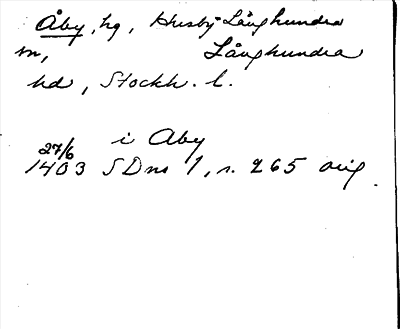 Åby, hg, Husby-Långhundra
sn, Långhundra
hd, Stockh. l.
i Aby
27/6
1403 SDns 1, s. 265 orig.